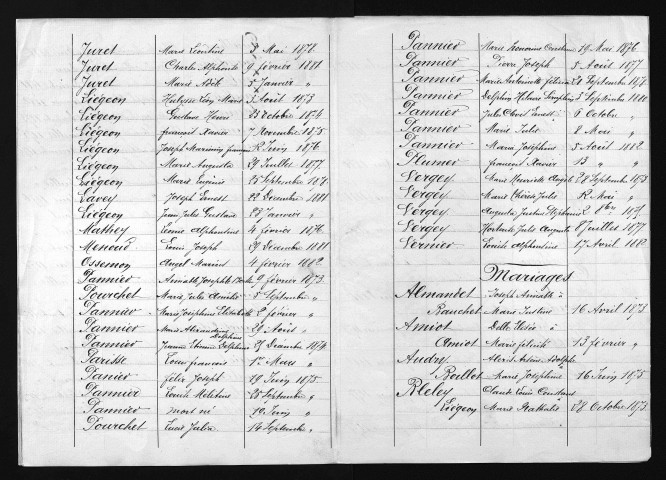 Juret Marie Léontine 3 Mai 1878
Juret Charles Alphonse 9 février 1881
Juret Marie 5 Janvier "
Liégeon Léon Marie 3 Août 1873
Liégeon Gustave Henri 25 Octobre 1874
Liégeon françois Xavier 7 Novembre 1875
Liégeon Joseph françois 12 Juin 1876
Liégeon Marie Augusta 29 Juillet 1877
Liégeon Marie Eugénie 25 Septembre
Lavey Joseph Ernest 22 Décembre 1881
Liégeon Jean Jules Gustave 25 Janvier "
Mathey Léonie Alphonsine 4 février 1876
Louis Joseph 29 Décembre 1881
Ossemon Angel Marius 4 février 1882
Pannier Joseph 9 février 1873
Pourchet Marie Julie 5 Septembre "
Pannier Marie Joséphine Elisabeth 2 février "
Pannier Marie Alexandrine Delphine 29 Août "
Pannier Delphine 25 Décembre 1874
Parisse Louis françois 1er Mars "
Panier Félix Joseph 19 Juin 1875
Pannier 25 Septembre "
Pannier mort né 19 Juin "
Pourchet Jules 14 Septembre "
Pannier Marie Honorine 29 Mai 1876
Pannier Pierre Joseph 5 Août 1877
Pannier Marie Antoinette 28 Septembre 1878
Pannier Delphin 5 Septembre 1881
Pannier Jules Ernest 6 Octobre "
Pannier Marie Julie 8 Mai "
Pannier Maria Joséphine 5 Août 1882
Plumer françois Xavier 13 " "
Vergey Marie Henriette Angèle 28 Septembre 1873
Vergey Marie Thérèse Julie 12 Mai "
Vergey Augusta Justine 2 8bre
Vergey Hortense Julie Augusta 8 Juillet 1877
Vernier Louise Alphonsine 17 Avril 1882
Mariages
Almandet Joseph à
Bauchet Marie Justine 16 Avril 1873
Amiot à
Amiot Marie 13 février "
Audry Alexis Adolphe à
Baillet Marie Joséphine 16 Juin 1875
Claude Louis Constant
Liégeon Marie Nathalie 28 Octobre 1873